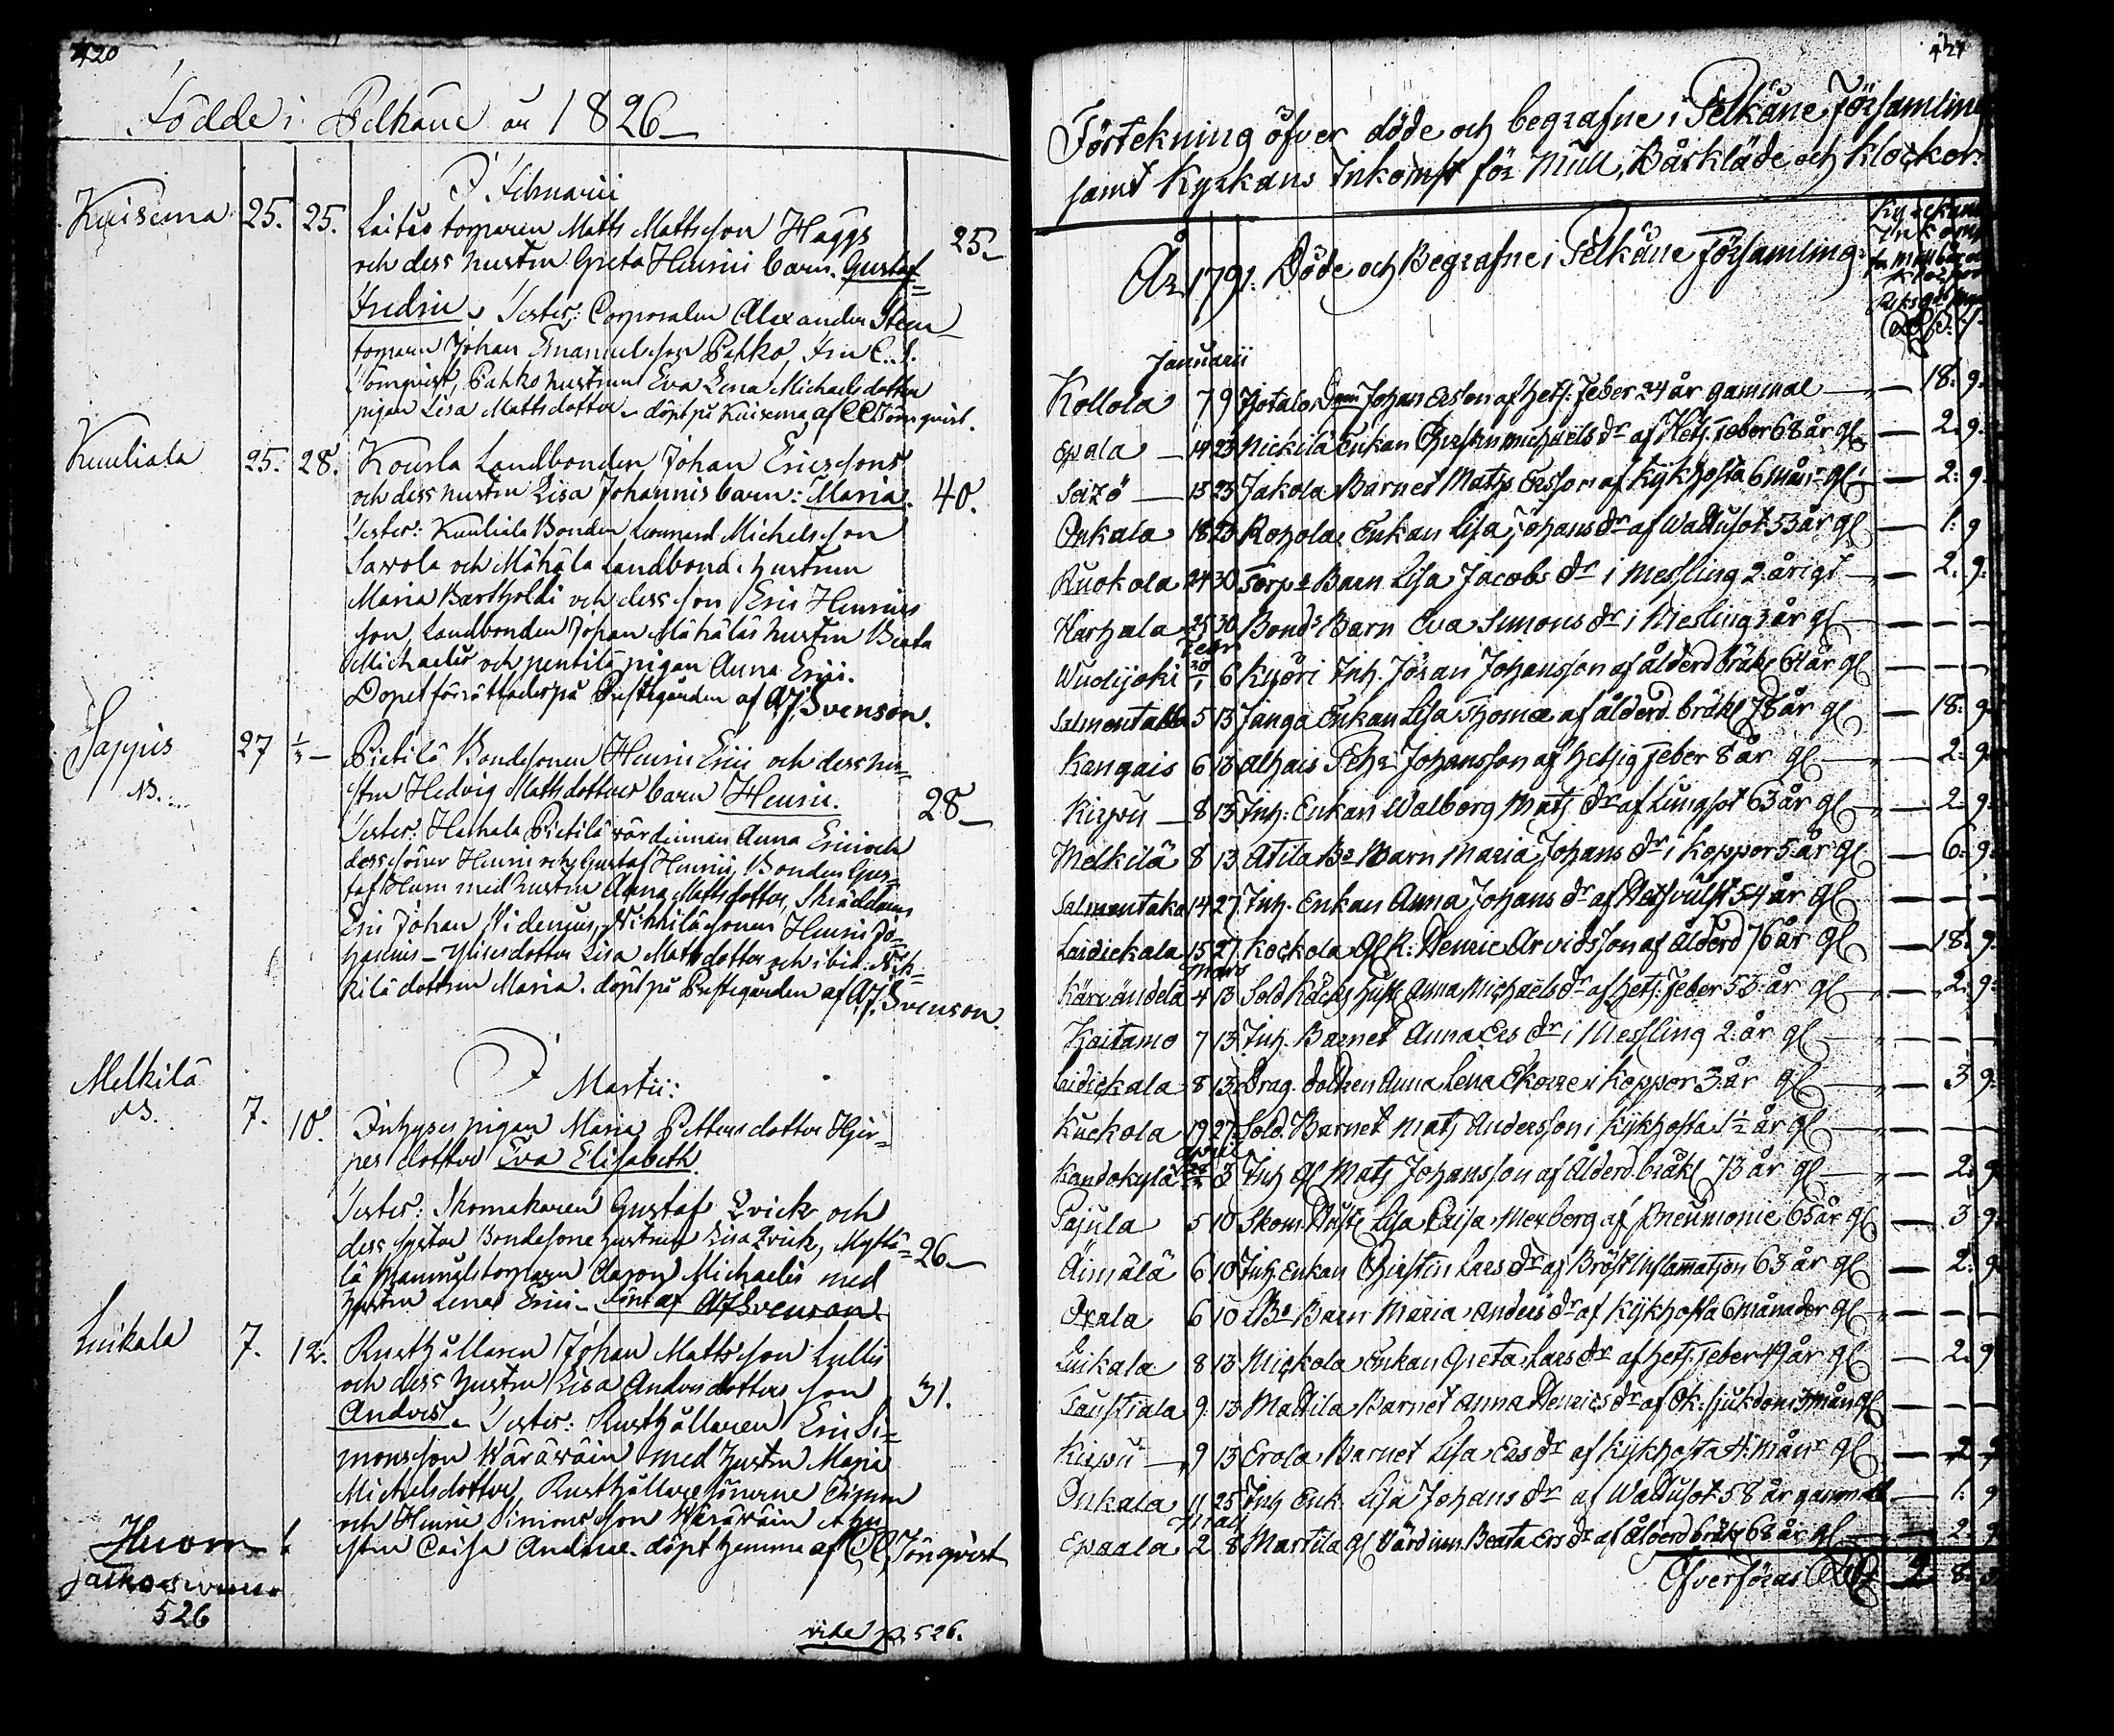 420
Födde i Pelkäne år 1826
P Februarii
Kuisema 25. 25. Laitës torparen Matts Mattsson Häggs
och dess hustru Greta Henrici barn. Gustaf 25
Fredric. Testes: Corporalen Alexander Sten
torparen Johan Emanuelsson Pahko, Fru C. S.
Törnqvist, Pahko hustrun Eva Lena Michaelsdotter
pigan Lisa Mattsdotter. döpt på Kuisema af CC Törnqvist.
Kuuliala 25. 28. Kourla Landbonden Johan Ericssons
och dess hustru Lisa Johannis barn: Maria. 40.
Testes: Kuuliala Bonden Leonard Michelsson
Sawola och Mähälä Landbond. hustrun
Maria Bartholdi och dess son Eric Henrics
son, Landbonden Johan Mähäläs hustru Beata
Michaelis och pentilä pigan Anna Erici.
Dopet förrättades på Prestegården af AJ. Svenson.
Sappis 27 1/3 — Pietilä Bondesonen Henric Erici och dess hu-
NB. stru Hedvig Mattsdotters barn Henric. 28
Testes: Harhala Pietilä värdinnan Anna Erici och
dess söner Henric och Gustaf Henrici, Bonden Gus-
taf Henr: med hustru Anna Mattsdotter, Skräddaren
Eric Johan Videnius, Nikkiläsonen Henric Jo-
hannis dotter Lisa Mattsdotter och ibid: Nik-
kilä dottren Maria. döpt på Prestegården af AJ. Svenson.
P Martii:
Melkilä
NB. 7. 10. Inhyses pigan Maria Pettersdotter Hjer-
pes dotter Eva Elisabeth.
Testes: Skomakaren Gustaf Qvick och
dess syster Bondesone hustrun Lisa Qvick, Myttä- 26
lä Gammals torparn Aaron Michaelis med
hustru Lena Erici. döpt af AJ Svenson.
Luikala 7. 12. Rusthållaren Johan Mattsson Lullis
och dess hustru Lisa Andersdotters son 31.
Anders. Testes: Rusthållaren Eric Si-
monsson Wäräwäin med hustru Maria
Michelsdotter, Rusthållaresönerne Simon
och Henric Simonsson Wäräwäin. hu
stru Caisa Andreæ. döpt hemma af CC Törnqvist
526
vide p. 526.
421
Förtekning öfver döde och begrafne i Pelkäne Församling
samt Kyrkans Inkomst för Mull, Bårkläde och Klockor.
År 1791. Döde och Begrafne i Pelkäne Församling.
Januarii
Kollola 7 9 Johan Ersson af hets: Feber 24 år gammal — 18. 9.
Epala 14 23 Nickilä Enkan Christin Michaëls dr af Hets. Feber 68 år gl — 2. 9.
Seizö 13 23 Jakola Barnet Mats Ersson af Kykhosta 6 mån: gl — 2. 9.
Onkala 18 23 Rohola Enkan Lisa Johans dr af Wattusot 53 år gl — 1. 9
Ruokola 24 30 Torp: Barn Lisa Jacobs dr i Messling 2: årigt — 2. 9.
Harhala 25 30 Bonde Barn Eva Simons dr i Messling 3 år gl — — —
Febr
Wuolijoki 30/1 6 Kyöri Inh. Jöran Johansson af ålderd. bräkl 64 år gl — — —
Salmentakka 5 13 Janga Enkan Lisa Thomæ af ålderd. bräkl 78 år gl — 18. 9.
Kangais 6 13 Alhais Pehr Johansson af Hetsig Feber 8 år gl — 2. 9.
Kirpu 8 13 Inh: Enkan Walborg Mats dr af Lungsot 63 år gl — 2. 9.
Melkilä 8 13 Atila Be Barn Maria Johans dr i Koppor 5 år gl — 6. 9.
Salmentaka 14 27 Inh. Enkan Anna Johans dr af 54 år gl — — —
Laidickala 15 27. Kockola gl R: Henric Arvidsson af Ålderd 76 år gl — 18. 9.
Mars
Kärvändelä 4 13 Sold Hustr Anna Michaëls dr af hets. Feber 53 år gl — 2. 9.
Kaitamo 7 13 Inh. Barnet Anna Ers dr i Messling 2. år gl — — —
Laidickala 8 13 Drag. dottren Anna Lena Skorre i Koppor 3. år gl — 3 9.
Kuckola 19 27. Sold. Barnet Mats Andersson i Kykhosta 1 1/2 år gl — — —
April
Kandokylä 3 Inh gl Mats Johansson af Ålderd. bräkl 73 år gl — 2. 9
Pajula 5 10 Skom. Hustr Lisa Caisa Mexberg af Pneumonie 65 år gl — 3 9.
Äimälä 6 10 Inh. Enkan Christin Lars dr af Bröst Inflammatjon 63 år gl — 2. 9
Oxala 6 10 Be Barn Maria Anders dr af Kykhosta 6 månader gl — — —
Luikala 8 13 Mickola Enkan Greta Lars dr af hets feber 49 år gl — 2. 9
Laustiala 9. 13 Mattila Barnet Anna Henrics dr af Ok: sjukdom 3 mån gl — — —
Kirpu 9 13 Erola Barnet Lisa Ers dr af Kykhosta 4: mån: gl — 2 9
Onkala 11 25 Inh Enk. Lisa Johans dr af Wattusot 58 år gammal — 1. 9
Maij
Epaala 2 8 Martila gl Värdinn. Beata Ers dr af Ålderd. bräkl 68 år gl — 2. 9
Öfverföras 2 8.